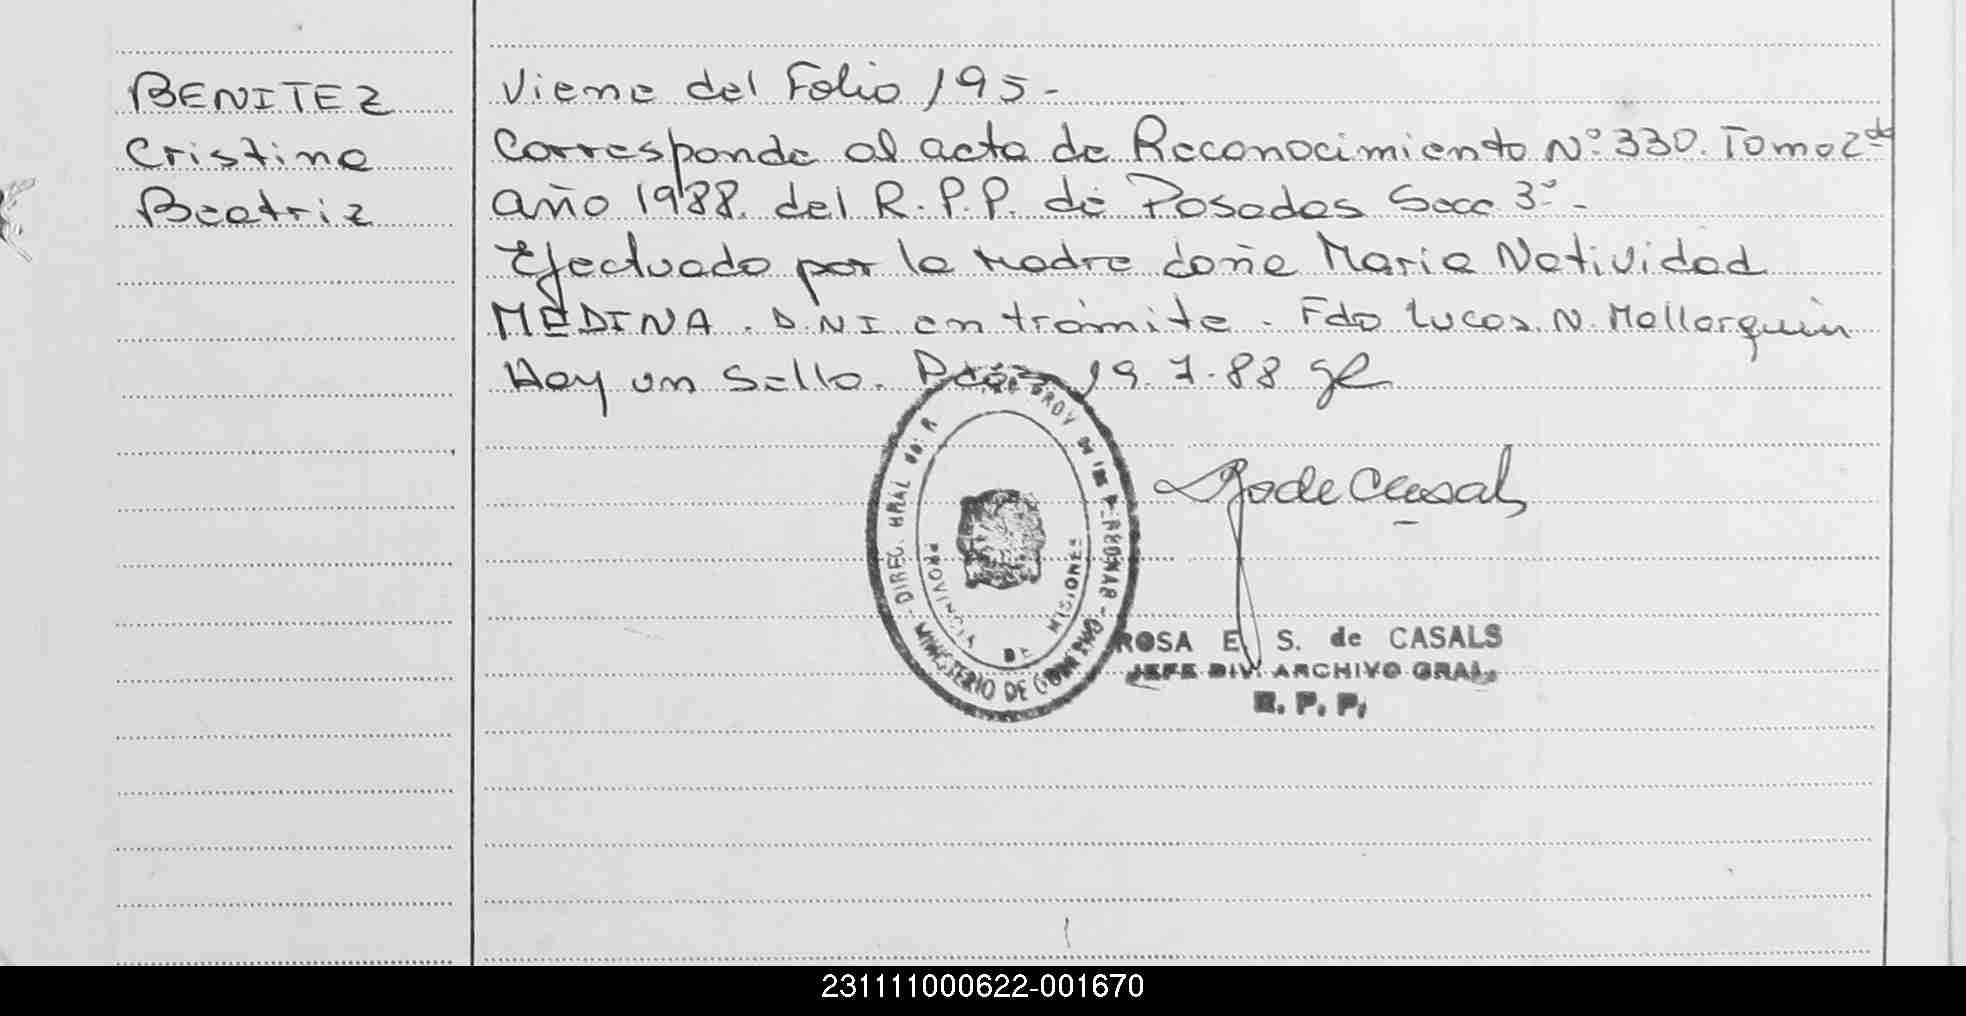 BENITEZ
Cristina
Beatriz
Viene del Folio 195-
Corresponde al acta de Reconocimiento Nº 330. Tomo 2do
año 1988. del R.P.P. de Posadas Secc 3º-
Efectuado por la Madre doña Maria Natividad
MEDINA. D.N.I en trámite. Fdo Lucas. N. Mallorquin
Hay un Sello. Pdas 19.7.88
PROVINCIA DE MISIONES
MINISTERIO DE GOBIERNO
R de Casals
ROSA E. S. de CASALS
JEFE DIV. ARCHIVO GRAL.
R. P. P.
231111000622-001670